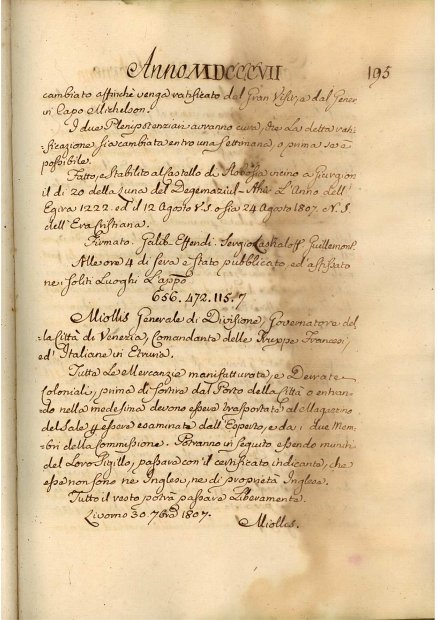 Anno MDCCCVII 195
cambiato affinchè venga ratificato dal Gran Visir, e dal Gener:
in Capo Michelson.
I due Plenipotenziari avranno cura, che La detta rati=
ficazione sia cambiata entro una settimana, o prima se è
possibile.
Fatto, e stabilito al Castello de Slobosia vicino a Giurgion
il dì 20 della Luna del Degemaziul-Ahir L'Anno dell'
Egira 1222. ed il 12 Agosto V.S. o sia 24 Agosto 1807. N.S.
dell'Era Cristiana.
Firmato. Galib. Effendi. Sergio Laskaloff. Guilleminot.
Alle ore 4 di sera è stato pubblicato, ed affissato
ne soliti Luoghi L'app.o
656. 472. 115. 7
Miollis Generale di Divisione, Governatore del
=la Città di Venezia, Comandante delle Truppe Francesi,
ed Italiane in Etruria.
Tutte Le Mercanzie manifatturate, e Derrate
Coloniali, prima di sortire dal Porto della Città o entran=
do nella medesima devono essere trasportate al Magazzino
del Sale p essere esaminate dall'Esperto, e da i due Mem=
bri della Commissione. Potranno in seguito essendo muniti
del Loro Sigillo, passare con il certificato indicante, che
esse non sono ne Inglesi, ne di proprietà Inglese.
Tutto il resto potrà passare Liberamente.
Livorno 30. 7bre 1807.
Miollis.